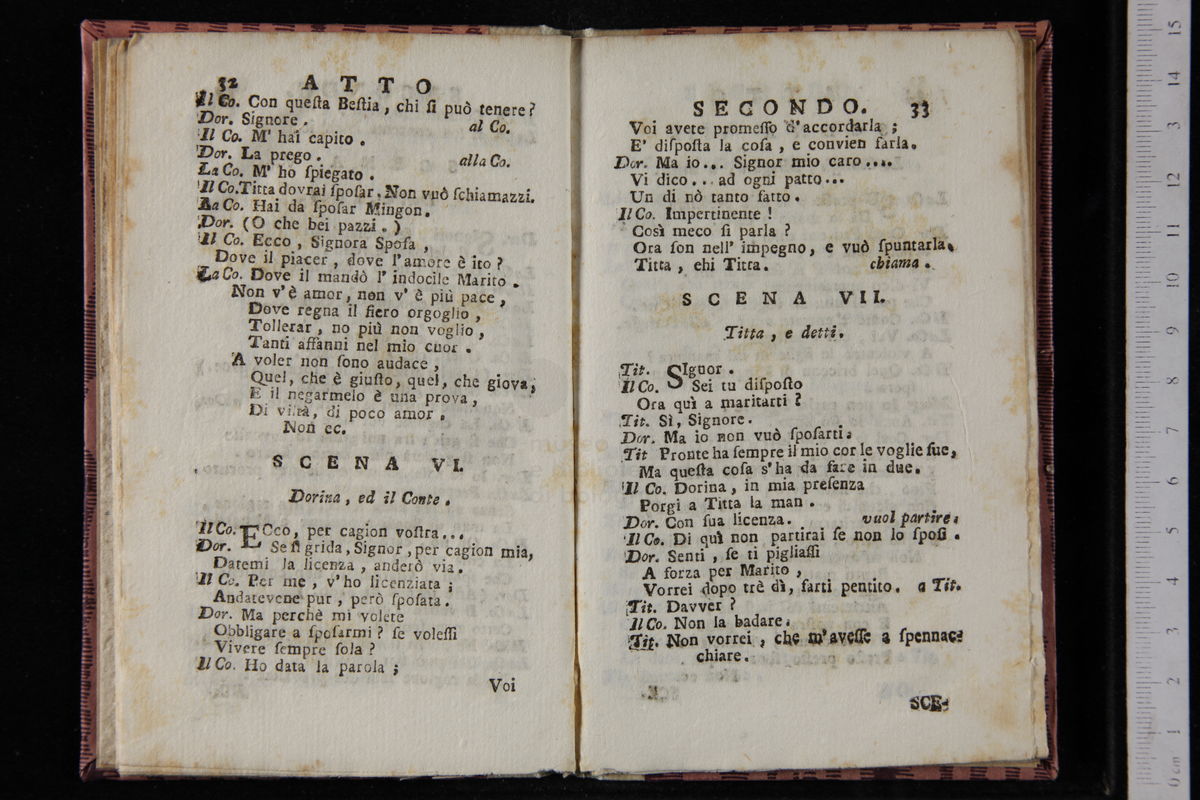 32 ATTO
Il Co. Con queſta Beſtia, chi ſi può tenere?
Dor. Signore. al Co.
Il Co. M' hai capito.
Dor. La prego. alla Co.
La Co. M' ho ſpiegato.
Il Co. Titta dovrai ſpoſar. Non vuò ſchiamazzi.
La Co. Hai da ſpoſar Mingon.
Dor. (O che bei pazzi.)
Il Co. Ecco, Signora Spoſa,
Dove il piacer, dove l'amore è ito?
La Co. Dove il mandò l' indocile Marito.
Non v'è amor, non v' è più pace,
Dove regna il fiero orgoglio,
Tollerar, no più non voglio,
Tanti affanni nel mio cuor.
A voler non ſono audace,
Quel, che è giuſto, quel, che giova,
E il negarmelo è una prova,
Di viltà, di poco amor.
Non ec.
SCENA VI.
Dorina, ed il Conte.
Il Co. ECco, per cagion voſtra...
Dor. Se ſi grida, Signor, per cagion mia,
Datemi la licenza, anderò via.
Il Co. Per me, v'ho licenziata;
Andatevene pur, però ſpoſata.
Dor. Ma perchè mi volete
Obbligare a ſpoſarmi? ſe voleſſi
Vivere ſempre ſola?
Il Co. Ho data la parola;
Voi
SECONDO. 33
Voi avete promeſſo d'accordarla;
E' diſpoſta la coſa, e convien farla.
Dor. Ma io... Signor mio caro....
Vi dico... ad ogni patto...
Un di nò tanto fatto.
Il Co. Impertinente!
Così meco ſi parla?
Ora ſon nell' impegno, e vuò ſpuntarla.
Titta, ehi Titta. chiama.
SCENA VII.
Titta, e detti.
Tit. SIguor.
Il Co. Sei tu diſpoſto
Ora quì a maritarti?
Tit. Sì, Signore.
Dor. Ma io non vuò ſpoſarti.
Tit Pronte ha ſempre il mio cor le voglie ſue,
Ma queſta coſa s'ha da fare in due.
Il Co. Dorina, in mia preſenza
Porgi a Titta la man.
Dor. Con ſua licenza. vuol partire.
Il Co. Di quì non partirai ſe non lo ſpoſi.
Dor. Senti, ſe ti pigliaſſi
A forza per Marito,
Vorrei dopo trè dì, farti pentito. a Tit.
Tit. Davver?
Il Co. Non la badare.
Tit. Non vorrei, che m'aveſſe a ſpennac-
chiare.
SCE-